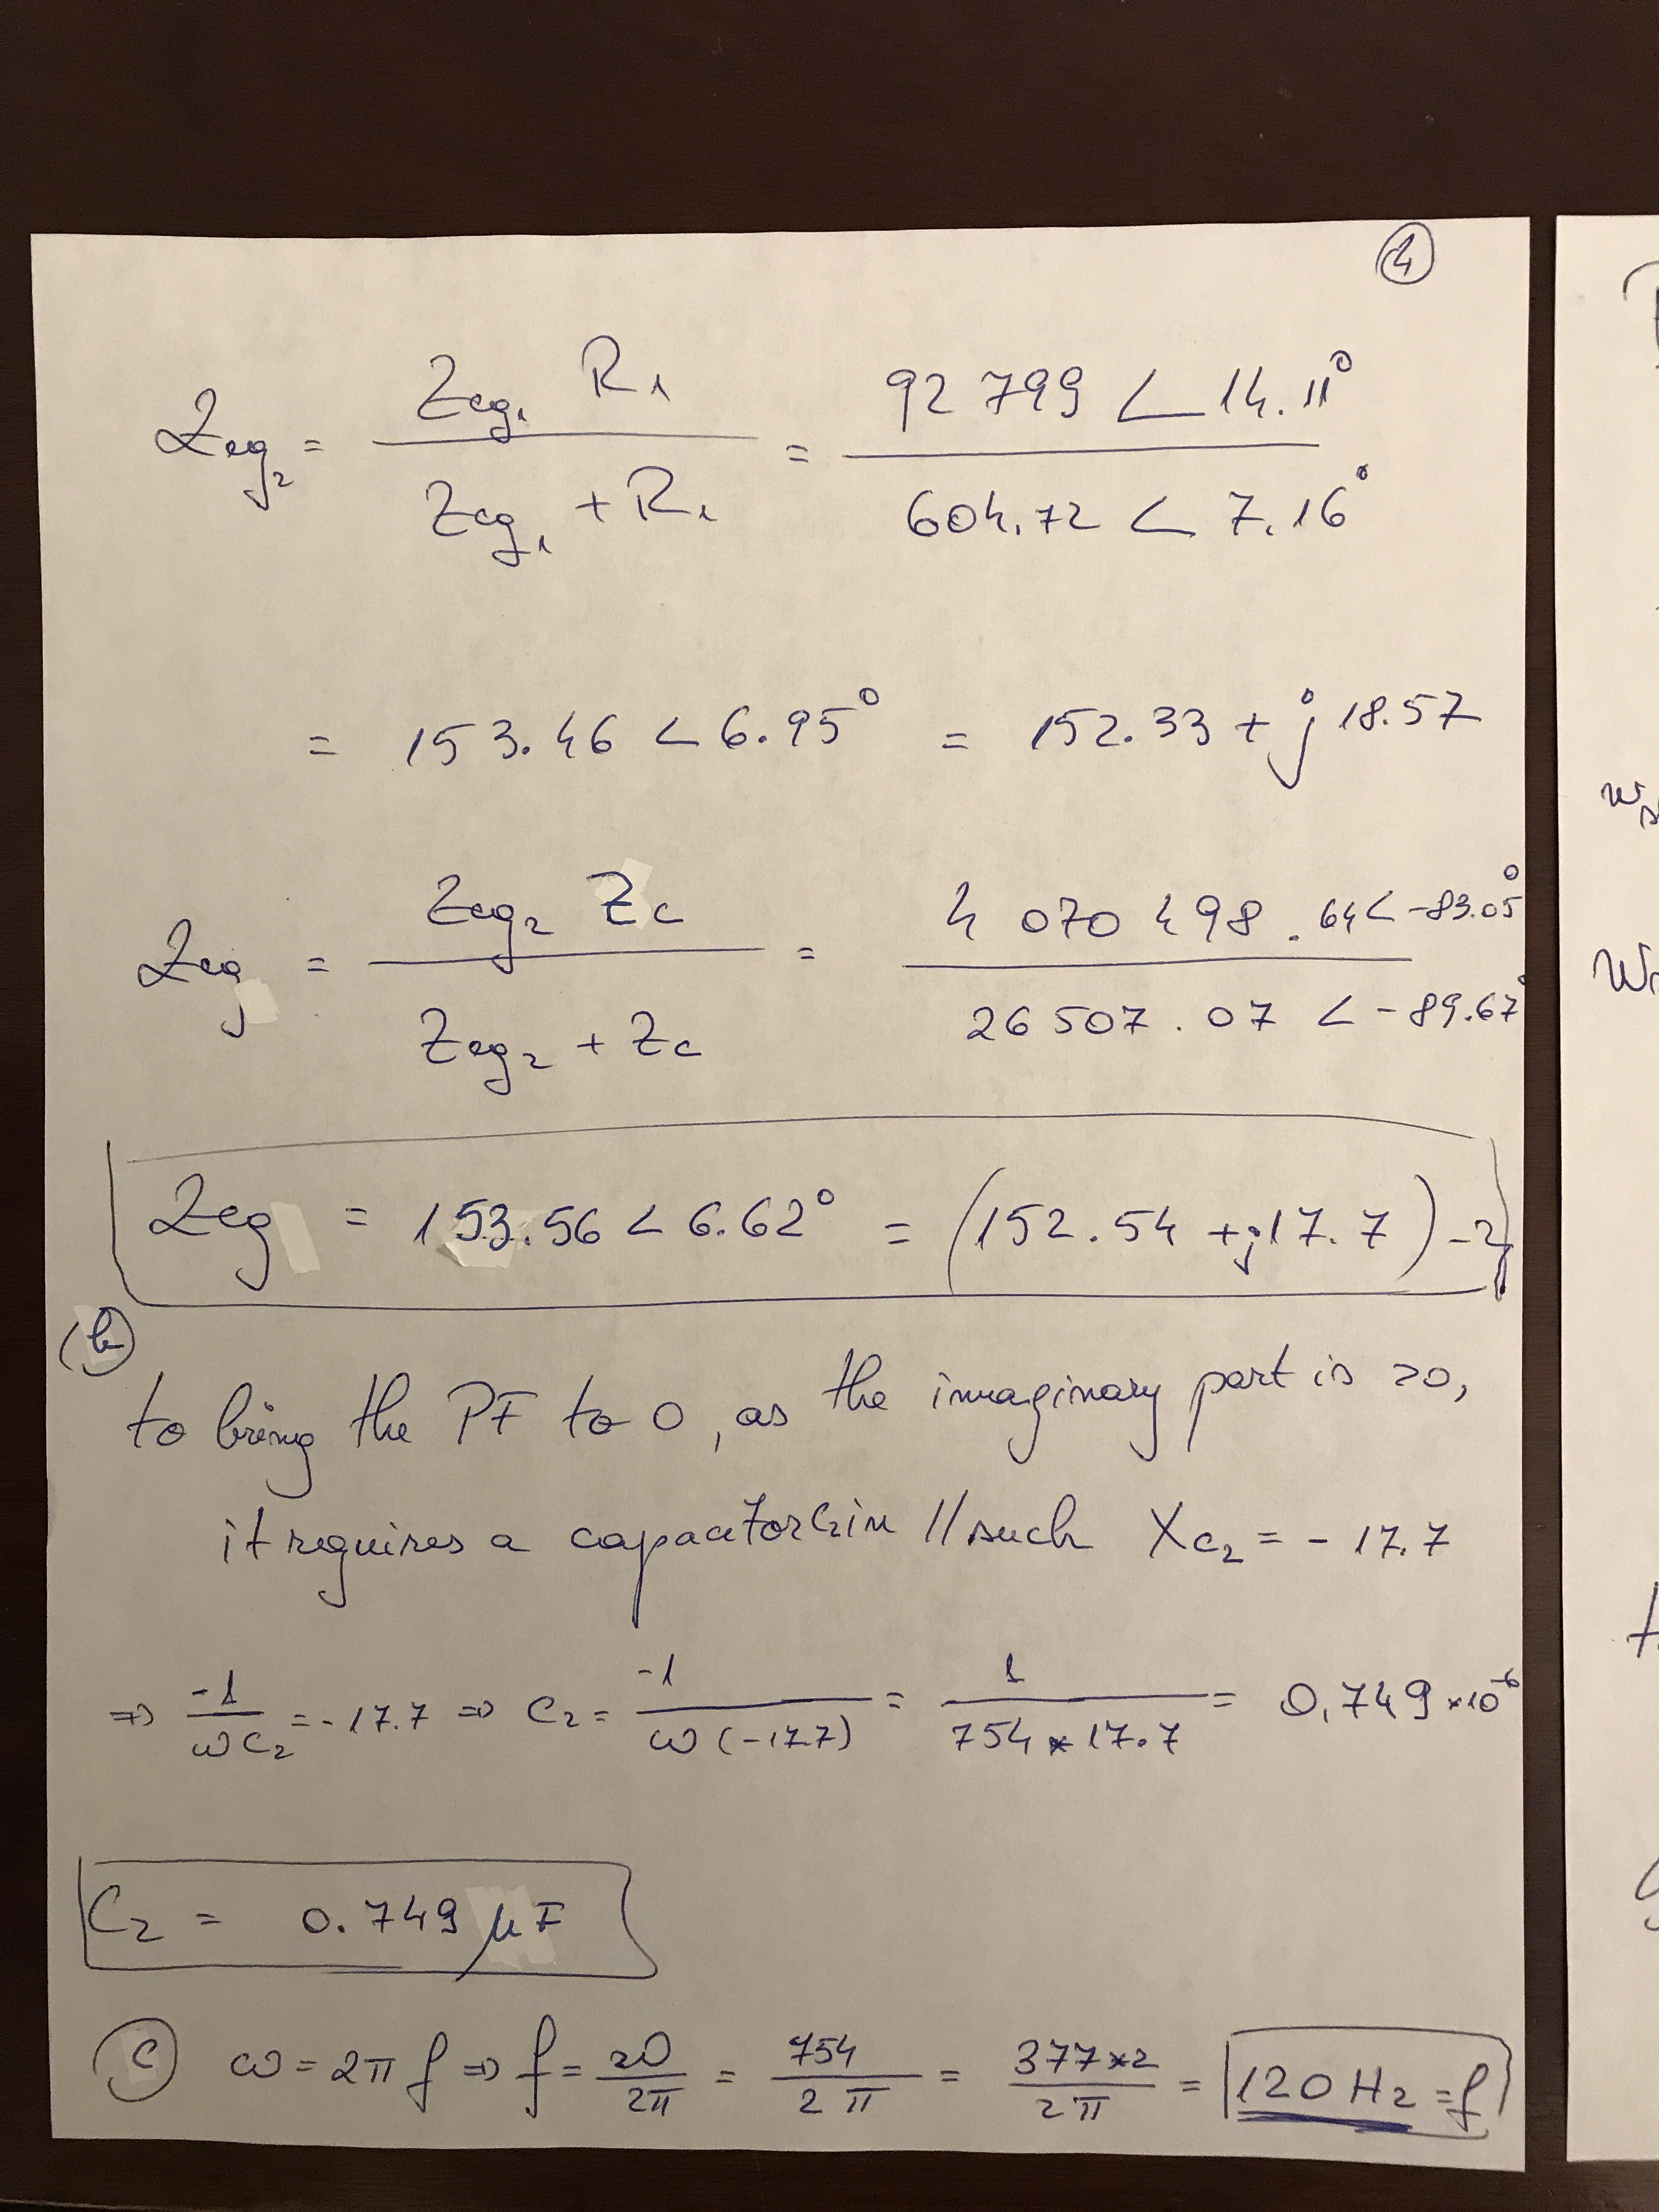 4
Zeq₂ = Zeq₁ R₁ / Zeq₁ + R₁ = 92 799 ∠ 14.11° / 604.72 ∠ 7.16°
= 153.46 ∠ 6.95° = 152.33 + j 18.57
Zeq = Zeq₂ Zc / Zeq₂ + Zc = 4 070 498.64 ∠ -83.05° / 26507.07 ∠ -89.67°
Zeq = 153.56 ∠ 6.62° = (152.54 + j17.7) Ω
(b)
to bring the PF to 0, as the imaginary part is >0,
it requires a capacitor C₂ in // such Xc₂ = - 17.7
=> -1 / ωC₂ = - 17.7 => C₂ = -1 / ω (-17.7) = 1 / 754 * 17.7 = 0,749 × 10⁻⁶
C₂ = 0.749 μF
(c) ω = 2π f => f = ω / 2π = 754 / 2π = 377×2 / 2π = 120 Hz = f